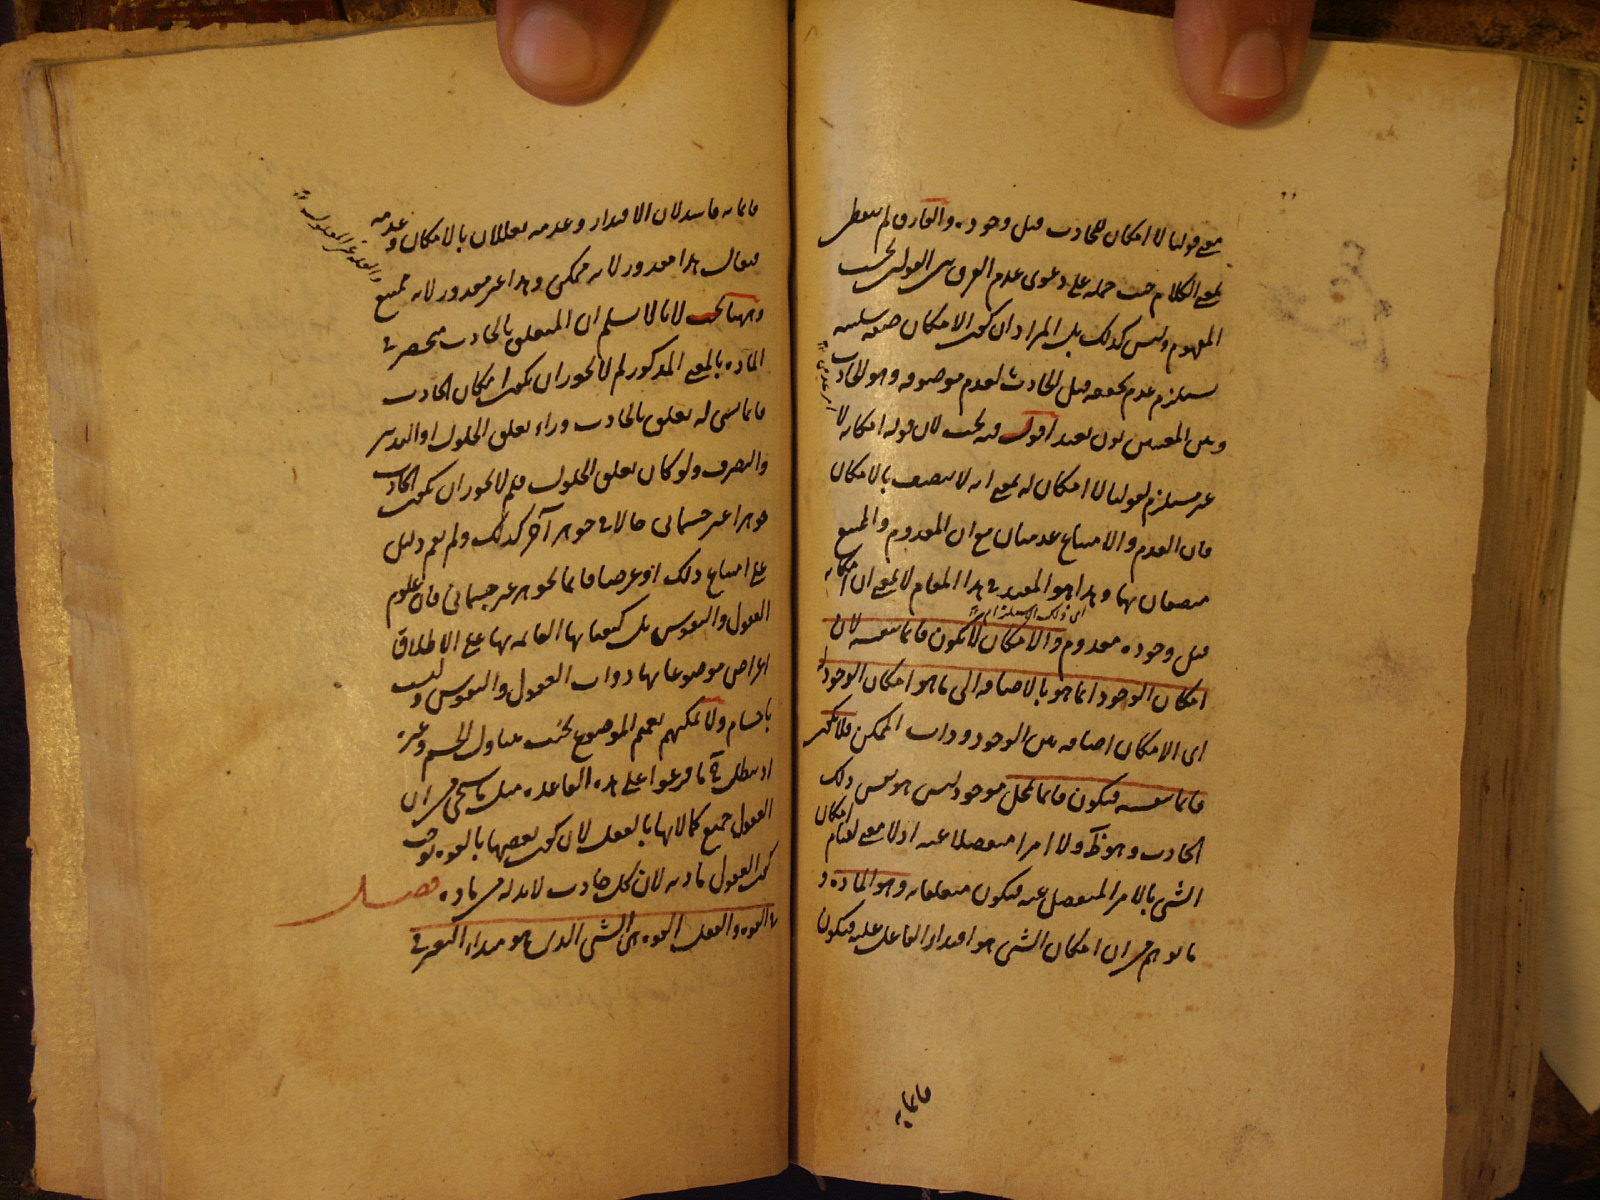 معنى قولنا لا امكان للحادث قبل وجوده والفارق لم يتفطن
لمعنى الكلام حيث حمله على دعوى عدم الفرق بين القولين بحسب
المفهوم وليس كذلك بل المراد ان كون الامكان صفة سلبية
يستلزم عدم تحققه قبل الحادث لعدم موصوفه وهو الحادث
وبين المعنيين بون بعيد اقول فيه بحث لان قوله امكانه لا
غير مستلزم لقولنا لا امكان له بمعنى انه لا يتصف بالامكان
فان العدم والامتناع عدميان مع ان المعدوم والممتنع
متصفان بهما وهذا هو المفيد في هذا المقام لا بمعنى ان امكانه
قبل وجوده معدوم والامكان لا يكون قائما بنفسه لان
امكان الوجود انما هو بالاضافة الى ما هو امكان الوجود له
اى الامكان اضافة بين الوجود وذات الممكن فلا يكون
قائما بنفسه فيكون قائما بمحل موجود ليس هو نفس ذلك
الحادث وهو ظ ولا امرا منفصلا عنه اذ لا معنى لقيام امكان
الشئ بالامر المنفصل عنه فيكون متعلقا به وهو المادة و
ما توهم من ان امكان الشئ هو اقتدار الفاعل عليه فيكون
قائما به
قائما به فاسد لان الاقتدار وعدمه يعللان بالامكان وعدمه
فيقال هذا مقدور لانه ممكن وهذا غير مقدور لانه ممتنع
والعلة غير المعلول
وههنا بحث لانا لا نسلم ان المتعلق بالحادث منحصر في
المادة بالمعنى المذكور لم لا يجوز ان يكون امكان الحادث
قائما بشئ له تعلق بالحادث وراء تعلق الحلول او التدبير
والتصرف ولو كان تعلق الحلول فلم لا يجوز ان يكون الحادث
جوهرا غير جسمانى حالا فى جوهر آخر كذلك ولم يقم دليل
على امتناع ذلك او عرضا قائما بجوهر غير جسمانى فان علوم
العقول والنفوس بل كيفياتها القائمة بها على الاطلاق
اعراض موضوعاتها ذوات العقول والنفوس وليست
باجسام ولا يمكنهم تعميم الموضوع بحيث يتناول الجسم وغيره
اذ يبطل ح ما فرعوا على هذه القاعدة مثل ما سيجئ من ان
العقول جميع كمالاتها بالفعل لان كون بعضها بالقوة يوجب
كون العقول مادية لان كل حادث لا بد له من مادة فصل
في القوة والفعل القوة هى الشئ الذى هو مبدأ التغير في